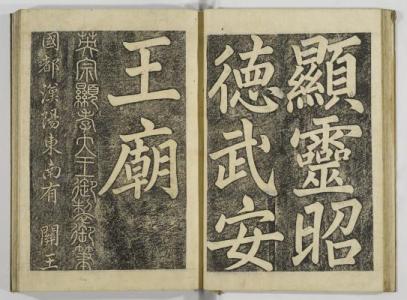 顯靈昭
德武安
王廟
英宗顯孝大王御製御筆
國都漢陽東南有 關王